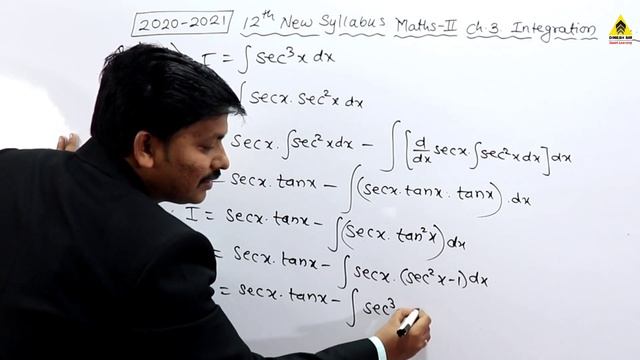 2020-2021 12th New Syllabus Maths-II Ch.3 Integration
I = ∫ sec³x dx
∫ secx. sec²x dx
secx. ∫sec²x dx - ∫[d/dx secx. ∫sec²x dx] dx
secx. tanx - ∫(secx. tanx. tanx). dx
I = secx. tanx - ∫(secx. tan²x) dx
= secx. tanx - ∫ secx. (sec²x-1) dx
= secx. tanx - ∫ sec³
DINESH SIR